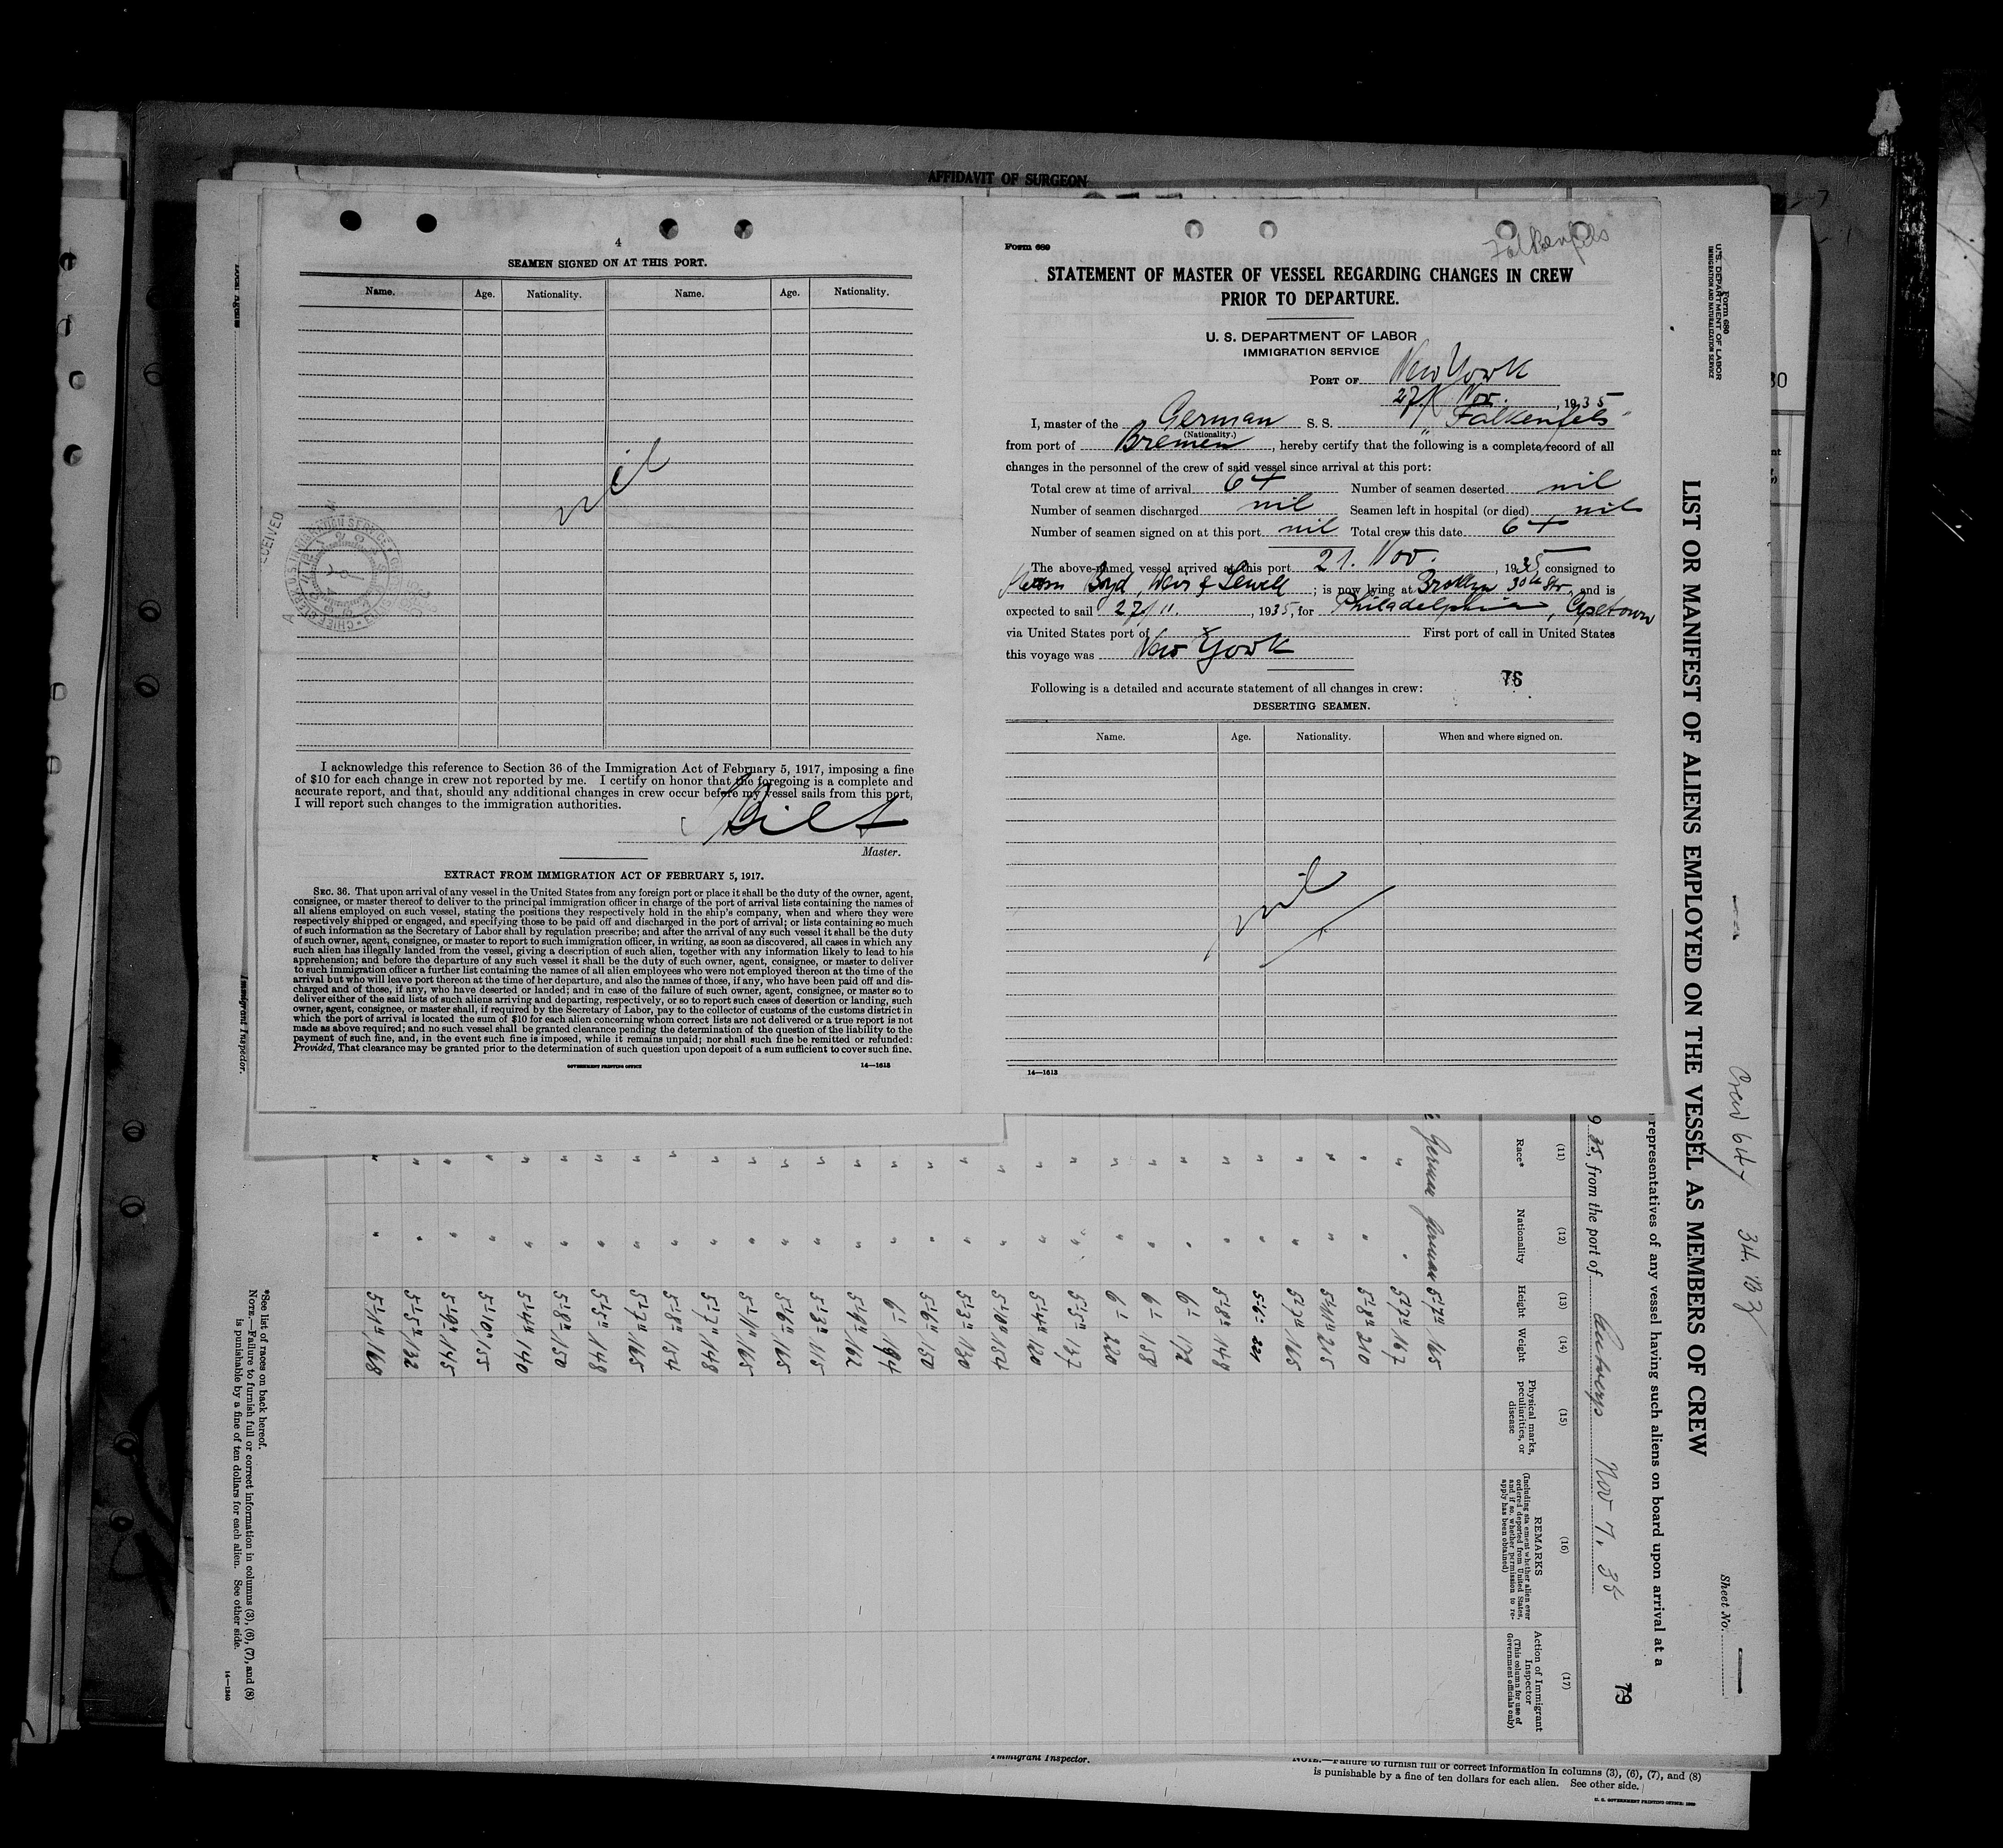 AFFIDAVIT OF SURGEON
4
SEAMEN SIGNED ON AT THIS PORT.
Name. Age. Nationality. Name. Age. Nationality.
nil
I acknowledge this reference to Section 36 of the Immigration Act of February 5, 1917, imposing a fine
of $10 for each change in crew not reported by me. I certify on honor that the foregoing is a complete and
accurate report, and that, should any additional changes in crew occur before my vessel sails from this port,
I will report such changes to the immigration authorities.
Master.
EXTRACT FROM IMMIGRATION ACT OF FEBRUARY 5, 1917.
SEC. 36. That upon arrival of any vessel in the United States from any foreign port or place it shall be the duty of the owner, agent,
consignee, or master thereof to deliver to the principal immigration officer in charge of the port of arrival lists containing the names of
all aliens employed on such vessel, stating the positions they respectively hold in the ship's company, when and where they were
respectively shipped or engaged, and specifying those to be paid off and discharged in the port of arrival; or lists containing so much
of such information as the Secretary of Labor shall by regulation prescribe; and after the arrival of any such vessel it shall be the duty
of such owner, agent, consignee, or master to report to such immigration officer, in writing, as soon as discovered, all cases in which any
such alien has illegally landed from the vessel, giving a description of such alien, together with any information likely to lead to his
apprehension; and before the departure of any such vessel it shall be the duty of such owner, agent, consignee, or master to deliver
to such immigration officer a further list containing the names of all alien employees who were not employed thereon at the time of the
arrival but who will leave port thereon at the time of her departure, and also the names of those, if any, who have been paid off and dis-
charged and of those, if any, who have deserted or landed; and in case of the failure of such owner, agent, consignee, or master so to
deliver either of the said lists of such aliens arriving and departing, respectively, or so to report such cases of desertion or landing, such
owner, agent, consignee, or master shall, if required by the Secretary of Labor, pay to the collector of customs of the customs district in
which the port of arrival is located the sum of $10 for each alien concerning whom correct lists are not delivered or a true report is not
made as above required; and no such vessel shall be granted clearance pending the determination of the question of the liability to the
payment of such fine, and, in the event such fine is imposed, while it remains unpaid; nor shall such fine be remitted or refunded:
Provided, That clearance may be granted prior to the determination of such question upon deposit of a sum sufficient to cover such fine.
GOVERNMENT PRINTING OFFICE 14—1613
Form 689
Falkenfels
STATEMENT OF MASTER OF VESSEL REGARDING CHANGES IN CREW
PRIOR TO DEPARTURE.
U. S. DEPARTMENT OF LABOR
IMMIGRATION SERVICE
PORT OF New York
27. Nov., 1935
I, master of the German S. S. "Falkenfels"
(Nationality.)
from port of Bremen, hereby certify that the following is a complete record of all
changes in the personnel of the crew of said vessel since arrival at this port:
Total crew at time of arrival 64 Number of seamen deserted nil
Number of seamen discharged nil Seamen left in hospital (or died) nil
Number of seamen signed on at this port nil Total crew this date 64
The above-named vessel arrived at this port 21. Nov., 1935 consigned to
Boyd, Weir & Sewell; is now lying at 30th Str, and is
expected to sail 27/11., 1935, for Philadelphia, Capetown
via United States port of First port of call in United States
this voyage was New York
Following is a detailed and accurate statement of all changes in crew: 76
DESERTING SEAMEN.
Name. Age. Nationality. When and where signed on.
nil
14—1613
Form 680
U.S. DEPARTMENT OF LABOR
IMMIGRATION AND NATURALIZATION SERVICE
LIST OR MANIFEST OF ALIENS EMPLOYED ON THE VESSEL AS MEMBERS OF CREW
Crew 64
Sheet No. 1
representatives of any vessel having such aliens on board upon arrival at a
9 35, from the port of Antwerp Nov 7. 35
79
(11) (12) (13) (14) (15) (16) (17)
Race* Nationality Height Weight Physical marks, peculiarities, or disease REMARKS Action of Immigrant Inspector
(Including statement whether alien ever ordered deported from United States, and if so, whether permission to re-apply has been obtained)
(This column for use of Government officials only)
German German 5'-7" 165
" " 5'-7" 167
" " 5'-8" 210
" " 5'-11" 215
" " 5'-7" 165
" " 5'-6" 221
" " 5'-8" 149
" " 6'- 172
" " 6'- 158
" " 6'- 220
" " 5'-5" 137
" " 5'-4" 120
" " 5'-10" 154
" " 5'-3" 130
" " 5'-6" 150
" " 6'- 194
" " 5'-9" 162
" " 5'-3" 115
" " 5'-6" 165
" " 5'-11" 165
" " 5'-7" 148
" " 5'-8" 154
" " 5'-7" 165
" " 5'-5" 148
" " 5'-8" 150
" " 5'-4" 140
" " 5'-10" 155
" " 5'-9" 145
" " 5'-5" 132
" " 5'-1" 168
*See list of races on back hereof.
NOTE.—Failure to furnish full or correct information in columns (3), (6), (7), and (8)
is punishable by a fine of ten dollars for each alien. See other side.
14—1240
Immigrant Inspector.
Immigrant Inspector.
NOTE.—Failure to furnish full or correct information in columns (3), (6), (7), and (8)
is punishable by a fine of ten dollars for each alien. See other side.
U. S. GOVERNMENT PRINTING OFFICE